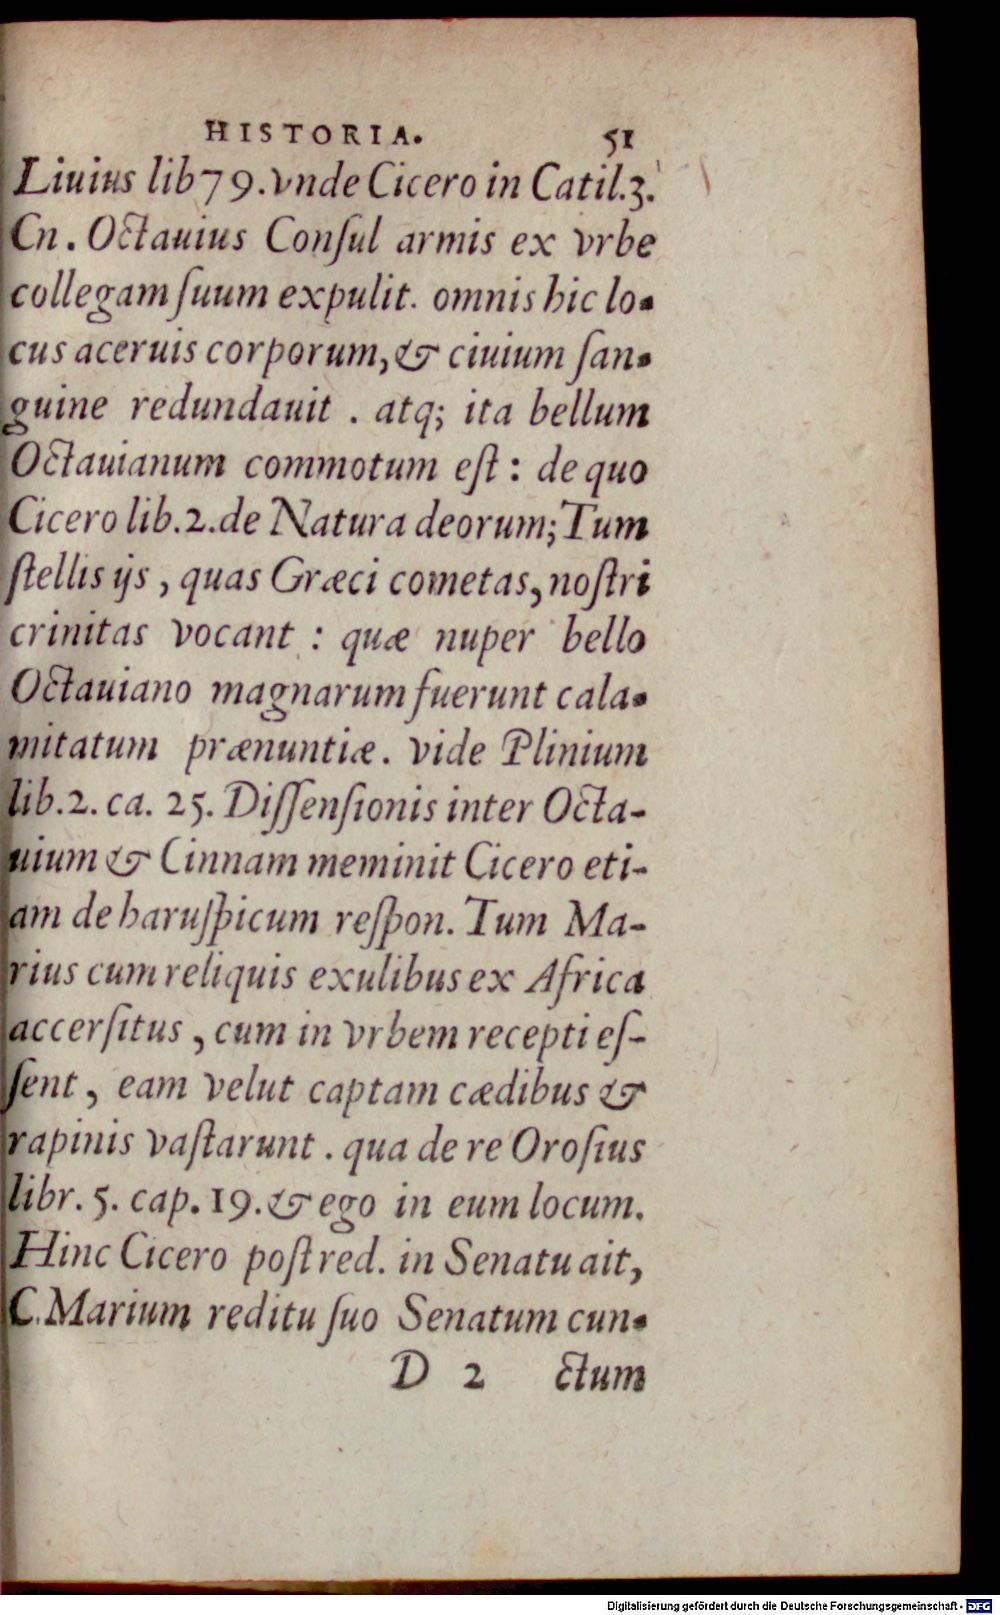 HISTORIA. 51
Liuius lib79.vnde Cicero in Catil.3.
Cn. Octauius Conſul armis ex vrbe
collegam ſuum expulit. omnis hic lo-
cus aceruis corporum, & ciuium ſan-
guine redundauit . atq; ita bellum
Octauianum commotum eſt : de quo
Cicero lib.2.de Natura deorum; Tum
ſtellis ijs , quas Græci cometas, noſtri
crinitas vocant : quæ nuper bello
Octauiano magnarum fuerunt cala-
mitatum prænuntiæ. vide Plinium
lib.2. ca. 25. Diſſenſionis inter Octa-
uium & Cinnam meminit Cicero eti-
am de haruſpicum reſpon. Tum Ma-
rius cum reliquis exulibus ex Africa
accerſitus , cum in vrbem recepti eſ-
ſent , eam velut captam cædibus &
rapinis vaſtarunt . qua de re Oroſius
libr. 5. cap. 19. & ego in eum locum.
Hinc Cicero poſt red. in Senatu ait,
C.Marium reditu ſuo Senatum cun-
D 2 ctum
Digitalisierung gefördert durch die Deutsche Forschungsgemeinschaft - DFG